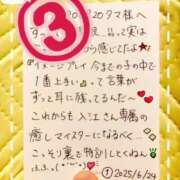 ③
20タマ様へ
良品って実は
感じてたよ
イメージプレイ 今までの子の中で
1番上手い って言葉が
ずっと耳に残ってるんだ〜♡
これからも 入江さん専属の
癒しマイスターになるべく…
こっそり裏で特訓してくねん
①2025/6/24